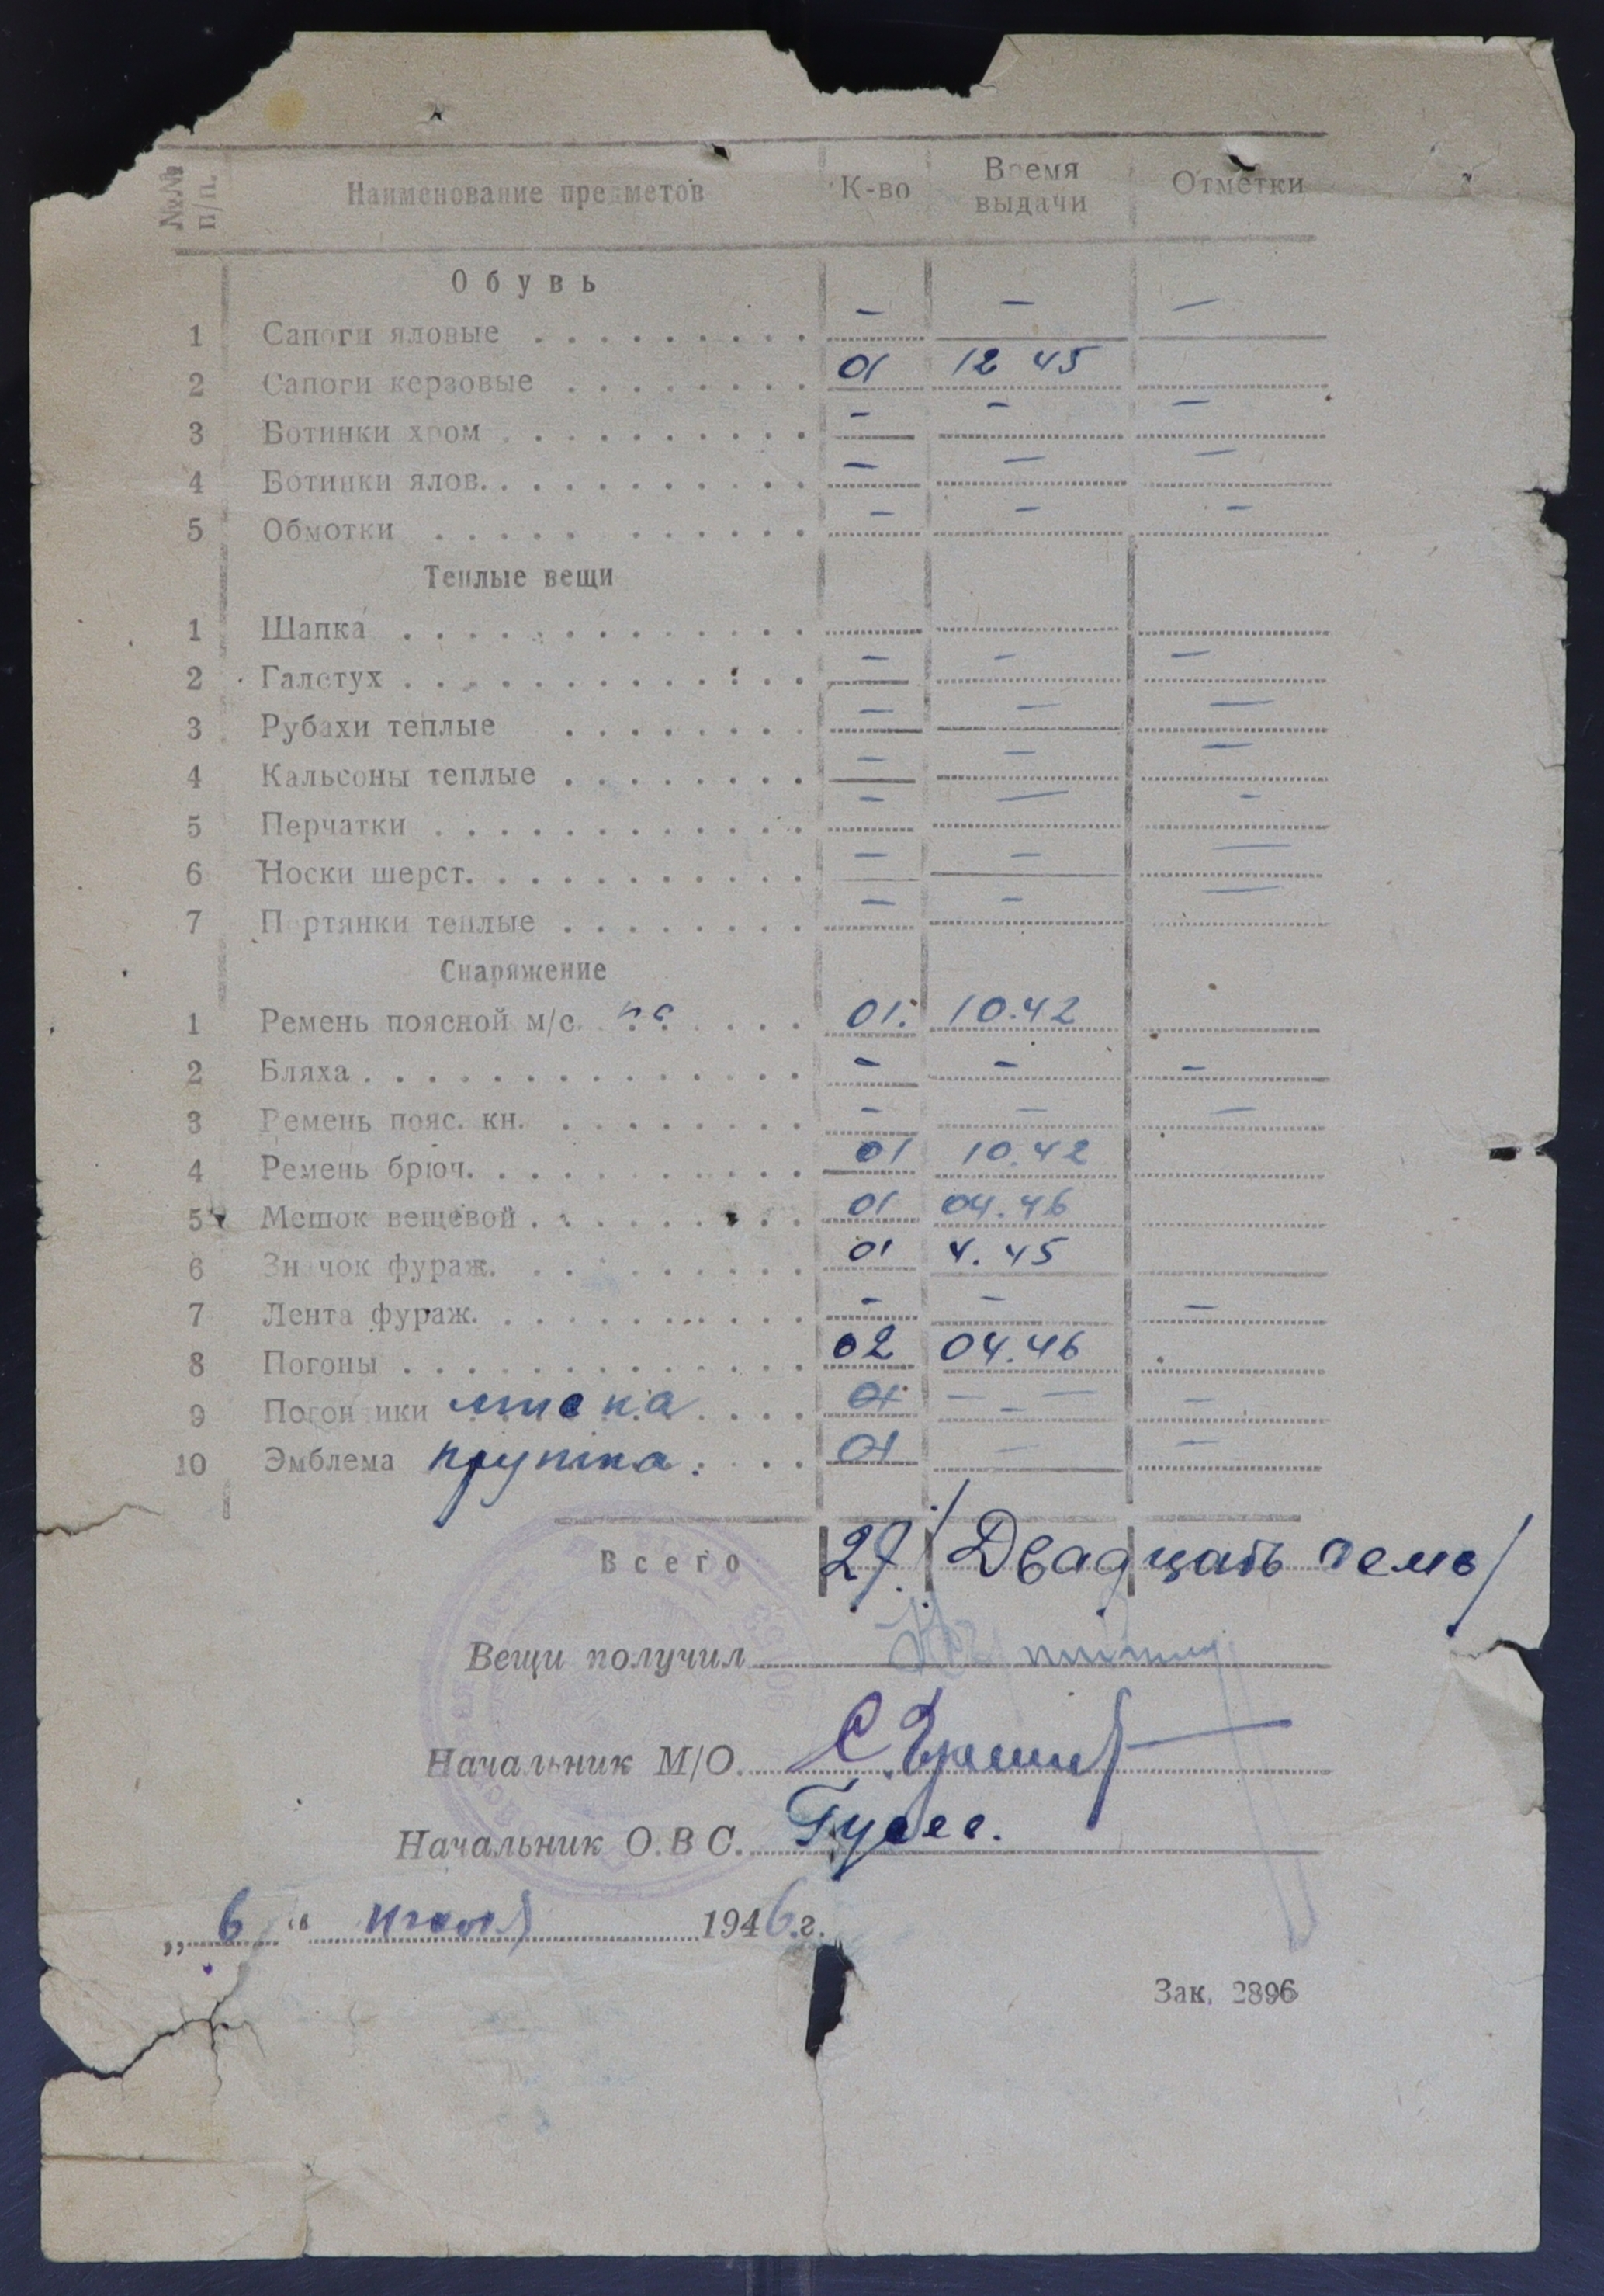 №№ п/п. Наименование предметов К-во Время выдачи Отметки
Обувь
1 Сапоги яловые . . . . . . . . . — — —
2 Сапоги керзовые . . . . . . . . 01 12 45
3 Ботинки хром . . . . . . . . . . — — —
4 Ботинки ялов. . . . . . . . . . . — — —
5 Обмотки . . . . . . . . . . . . — — —
Теплые вещи
1 Шапка . . . . . . . . . . . . .
2 Галстух . . . . . . . . . . . . . — — —
3 Рубахи теплые . . . . . . . . — — —
4 Кальсоны теплые . . . . . . . . — — —
5 Перчатки . . . . . . . . . . . . — — —
6 Носки шерст. . . . . . . . . . . — — —
7 Портянки теплые . . . . . . . . — — —
Снаряжение
1 Ремень поясной м/с . . . . . . 01. 10.42
2 Бляха . . . . . . . . . . . . . . — — —
3 Ремень пояс. кн. . . . . . . . . — — —
4 Ремень брюч. . . . . . . . . . . 01 10.42
5 Мешок вещевой . . . . . . . . . 01 04.46
6 Значок фураж. . . . . . . . . . 01 4.45
7 Лента фураж. . . . . . . . . . . — — —
8 Погоны . . . . . . . . . . . . . 02 04.46
9 Погончики миска . . . . 01 — — —
10 Эмблема кружка. . . . 01 — —
Всего 27. /Двадцать семь/
Вещи получил
Начальник М/О. С.
Начальник О.В С. Гусев.
„ 6 “ 1946.г.
Зак. 2896